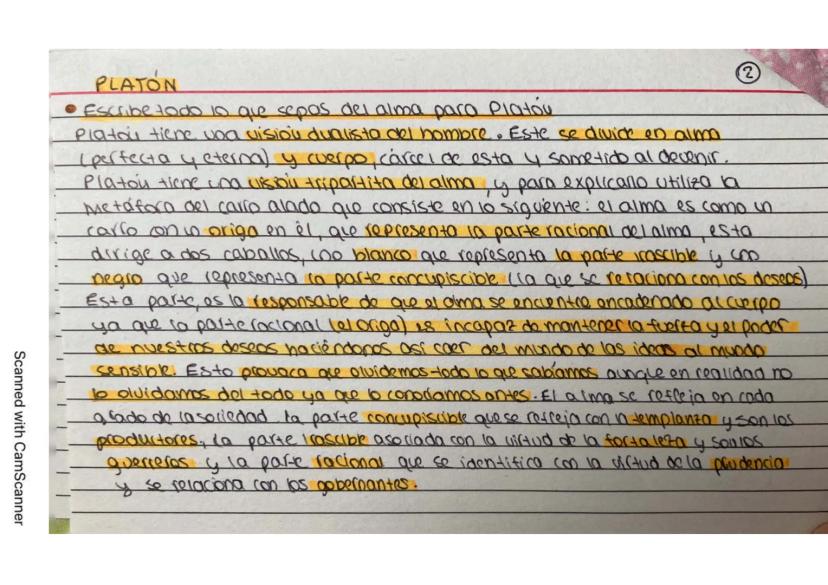 ②
PLATÓN
• Escribe todo lo que sepas del alma para Platón
Platón tiene una visión dualista del hombre. Este se divide en alma
(perfecta y eterna) y cuerpo, cárcel de esta y sometido al devenir.
Platón tiene una visión tripartita del alma, y para explicarlo utiliza la
metáfora del carro alado que consiste en lo siguiente: el alma es como un
carro con un origa en él, que representa la parte racional del alma, esta
dirige a dos caballos, uno blanco que representa la parte irascible y uno
negro que representa la parte concupiscible (la que se relaciona con los deseos)
Esta parte, es la responsable de que el alma se encuentre encadenada al cuerpo
ya que la parte racional (el origa) es incapaz de mantener la fuerza y el poder
de nuestros deseos haciéndonos así caer del mundo de las ideas al mundo
sensible. Esto provoca que olvidemos todo lo que sabíamos aunque en realidad no
lo olvidamos del todo ya que lo conocíamos antes. El alma se refleja en cada
grado de la sociedad la parte concupiscible que se refleja con la templanza y son los
productores, la parte irascible asociada con la virtud de la fortaleza y son los
guerreros y la parte racional que se identifica con la virtud de la prudencia
y se relaciona con los gobernantes.
Scanned with CamScanner